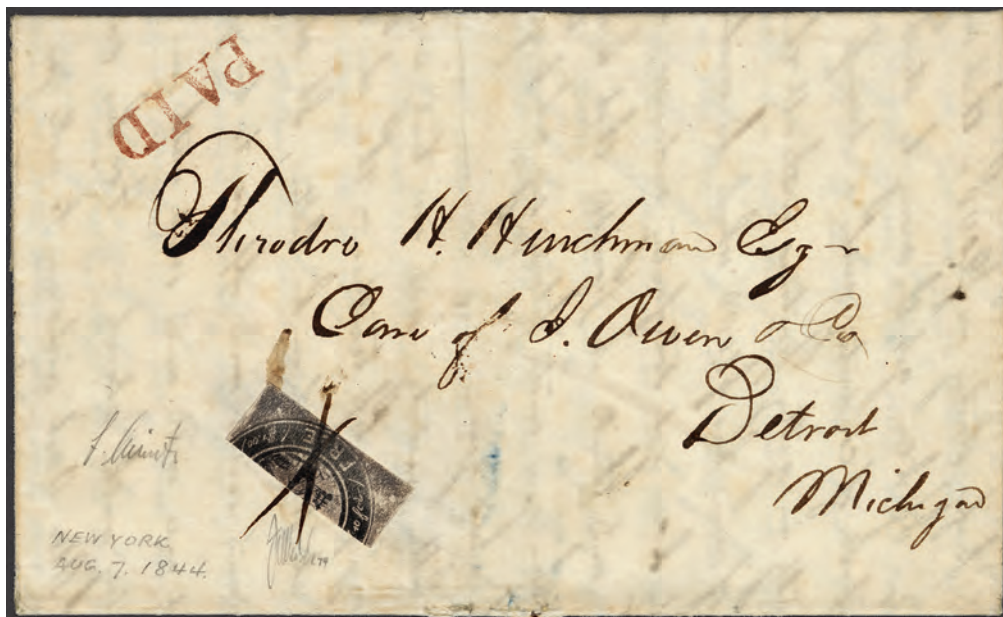 PAID
Theodre H. Hinchman Esqr
Care of J. Owen & Co
Detroit
Michigan
NEW YORK
AUG. 7. 1844.